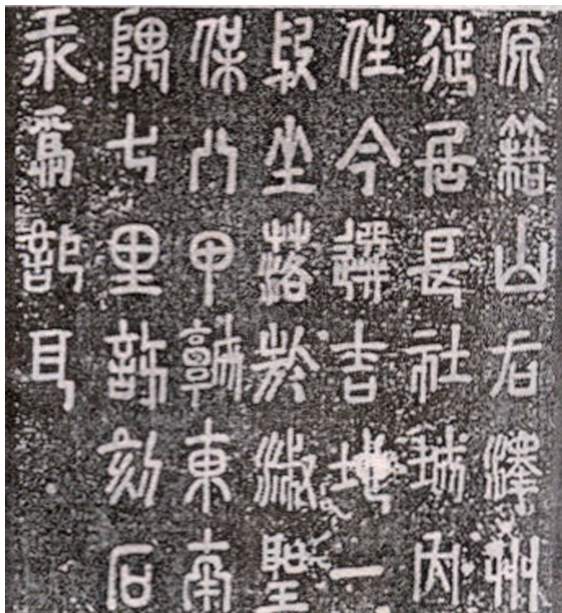 原籍山右澤州
徙居長社城內
住今選吉地一
段坐落於淑聖
保八甲城東南
隅七里許刻石
永爲記耳